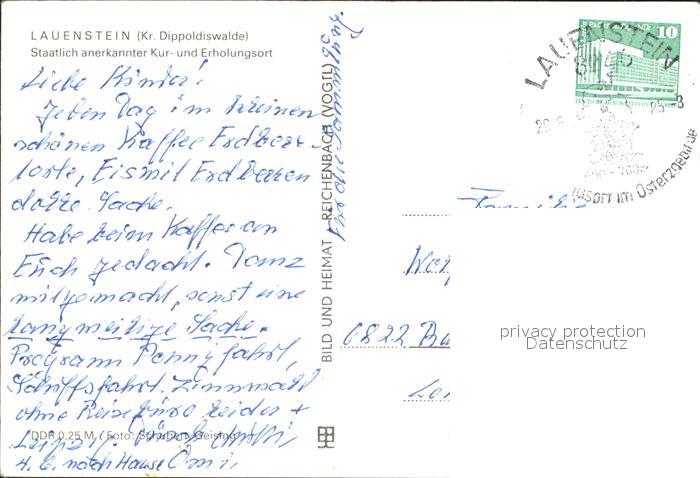 LAUENSTEIN (Kr. Dippoldiswalde)
Staatlich anerkannter Kur- und Erholungsort
Liebe Kinder!
Jeden Tag im kleinen
schönen Kaffee Erdbeer-
torte, Eis mit Erdbeeren
dolle Sache.
Habe beim Kaffee an
Euch gedacht. Tanz
mitgemacht, sonst eine
langweilige Sache.
Programm Ponnyfahrt,
Schiffsfahrt. Zinnwald
ohne Reisebüro leider +
Leipzig.
DDR 0,25 M (Foto: Schubert, Geising)
4. 6. nach Hause Omi
BILD UND HEIMAT REICHENBACH (VOGTL)
Für die Sammlung
LAUENSTEIN
8245
10
-8
ort im Osterzgebirge
Familie
6822 Ba
privacy protection
Datenschutz